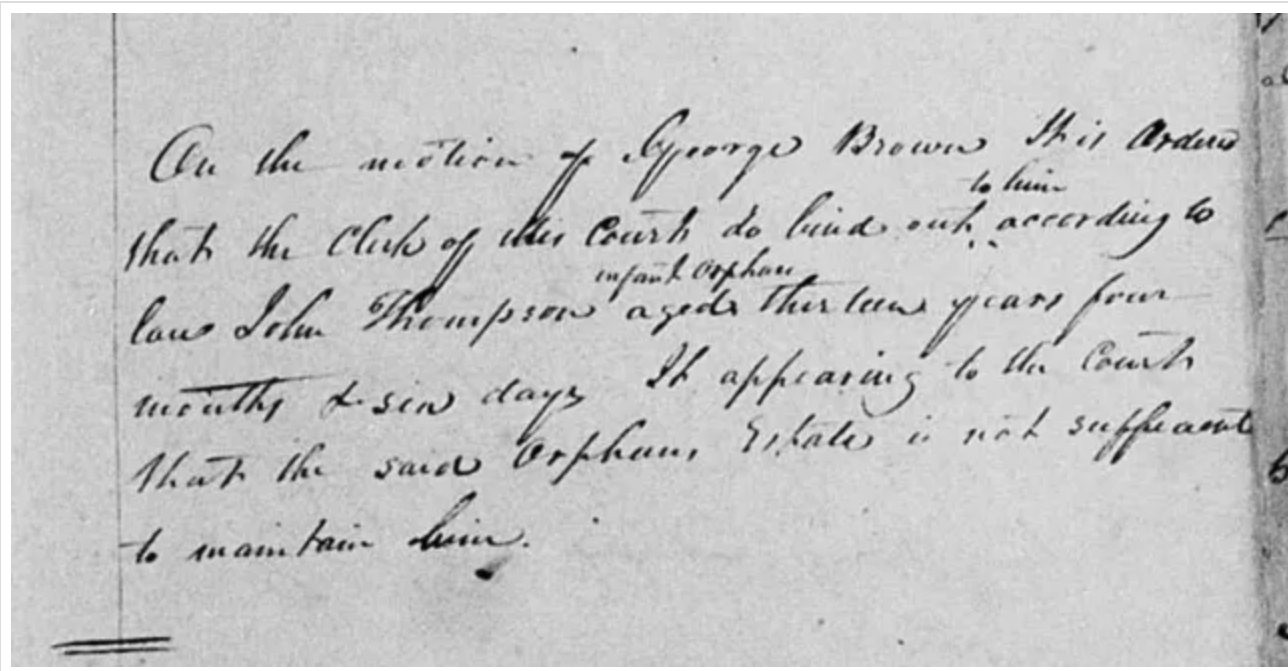 On the motion of George Brown It is Ordered
to him
that the Clerk of this Court do bind out according to
infant Orphan
law John Thompson aged thirteen years four
months & six days It appearing to the Court
that the said Orphans Estate is not sufficient
to maintain him.